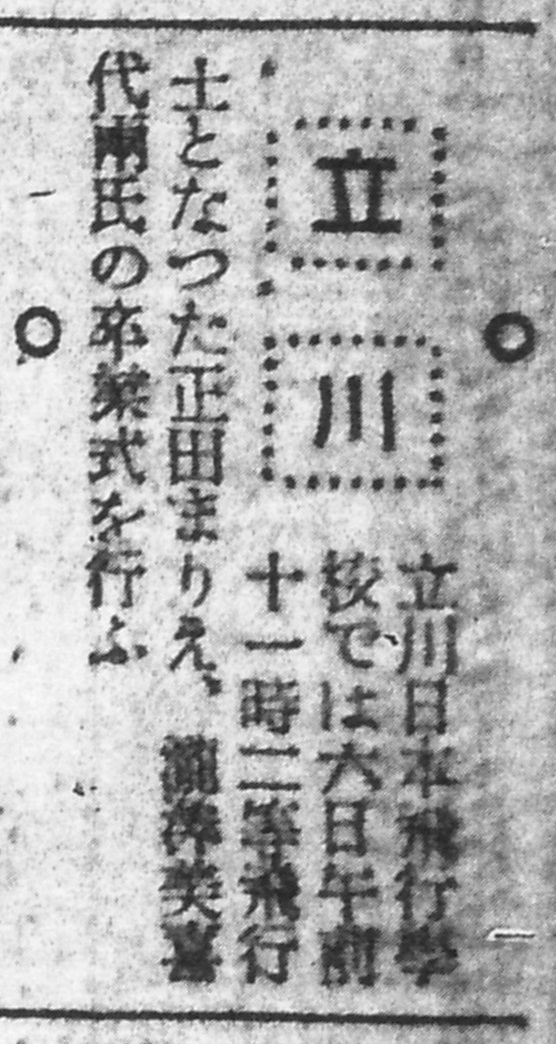 立川
立川日本飛行學
校では六日午前
十一時二等飛行
士となつた正田まりえ、澤美喜
代兩氏の卒業式を行ふ